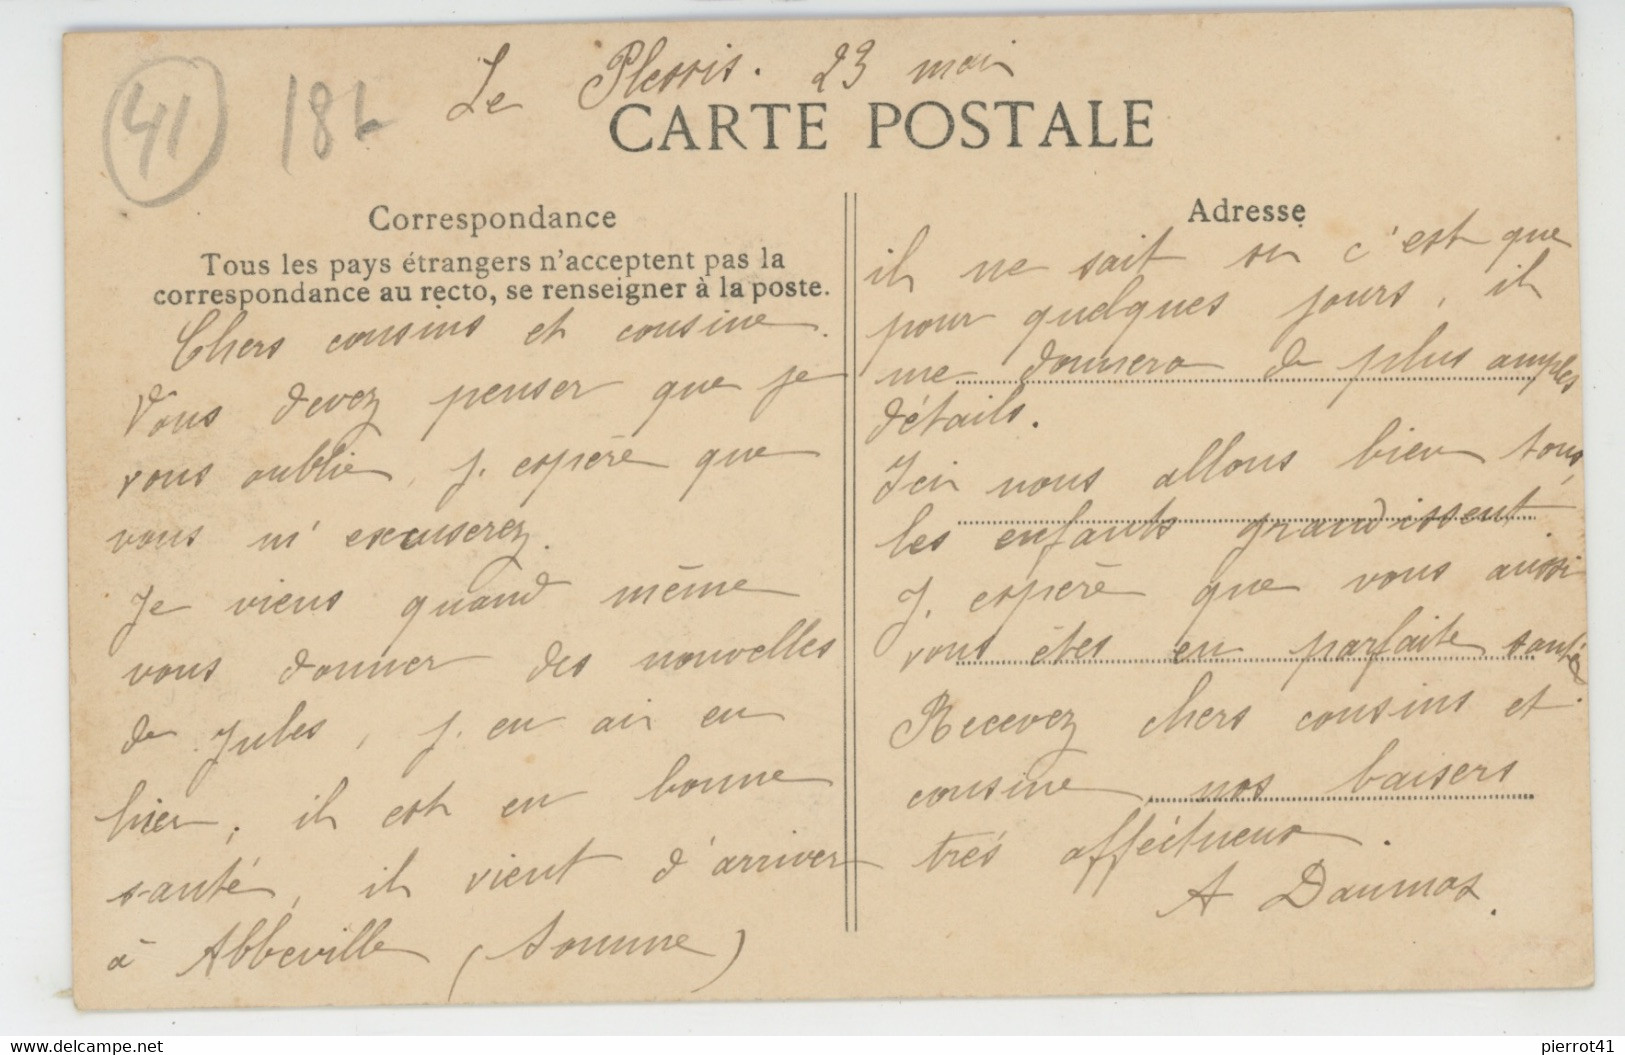 41
18
Le Plessis. 23 mai
CARTE POSTALE
Correspondance
Tous les pays étrangers n'acceptent pas la
correspondance au recto, se renseigner à la poste.
Chers cousins et cousine.
Vous devez penser que je
vous oublie, j. espère que
vous m'excuserez.
Je viens quand même
vous donner des nouvelles
de Jules, j. en ai eu
hier, il est en bonne
santé, il vient d'arriver
à Abbeville (Somme)
Adresse
il ne sait si c'est que
pour quelques jours, il
me donnera de plus amples
détails.
Ici nous allons bien tous,
les enfants grandissent
J. espère que vous aussi
vous êtes en parfaite santé
Recevez chers cousins et
cousine nos baisers
très affectueux.
A Daumas.
www.delcampe.net
pierrot41